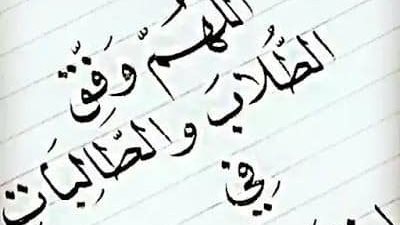 اللهُمَّ وَفِّقْ
الطُّلابَ والطَّالِبَاتِ
فِي